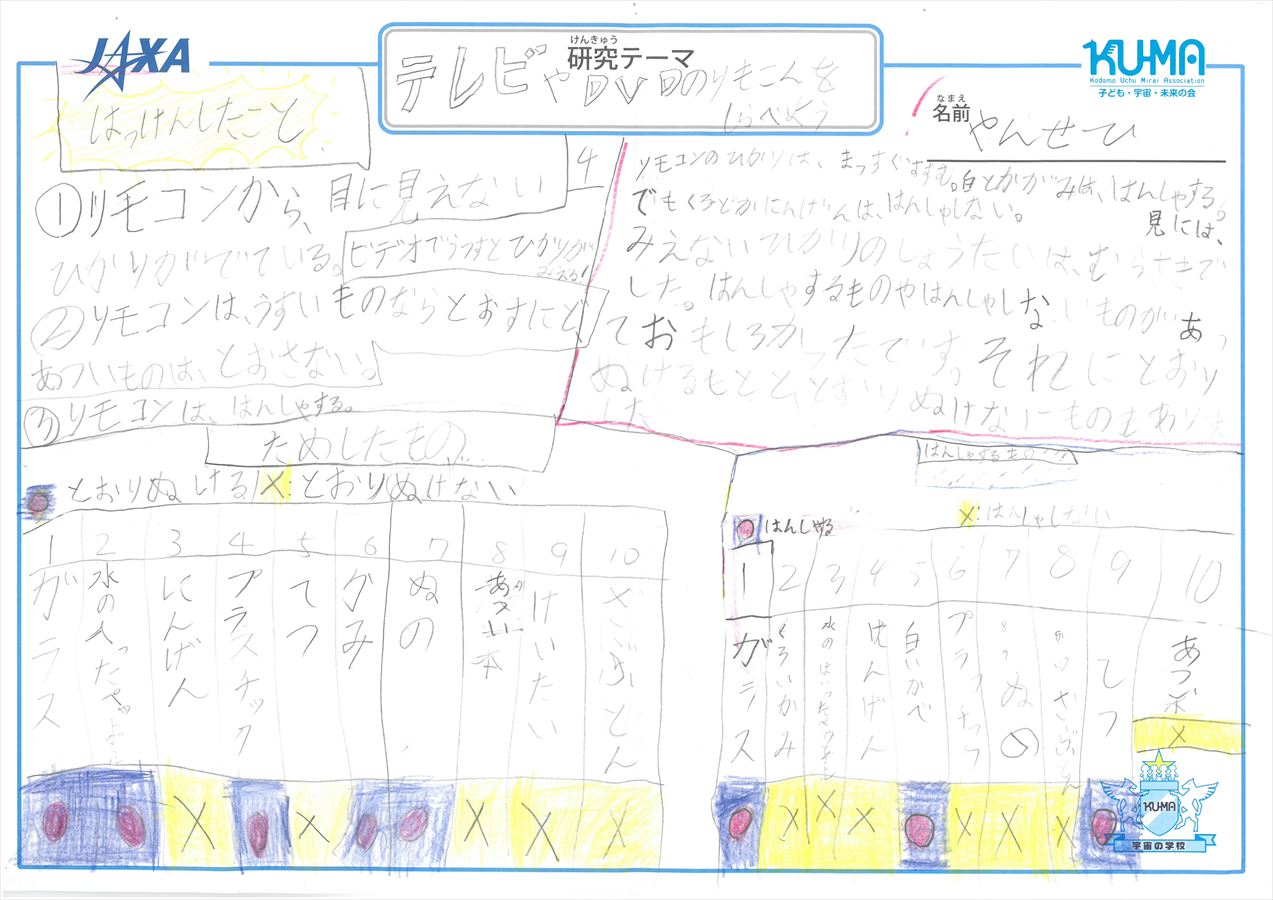 JAXA
けんきゅう
研究テーマ
テレビやDVDのりもこんを
しらべよう
KUMA
Kodomo Uchu Mirai Association
子ども・宇宙・未来の会
なまえ
名前
やんせひ
はっけんしたこと
①リモコンから、目に見えない
ひかりがでている。
ビデオでうつすとひかりが
みえる!
②リモコンは、うすいものならとおすけど、
あついものは、とおさない。
③リモコンは、はんしゃする。
4
リモコンのひかりは、まっすぐすすむ。白とかがみは、はんしゃする。
でもくろとかにんげんは、はんしゃしない。
見には、
みえないひかりのしょうたいは、むらさきで
した。はんしゃするものやはんしゃしないものがあっ
ておもしろかったです。それにとおり
ぬけるもとと、とおりぬけないにものもありま
した
ためしたもの
とおりぬける X:とおりぬけない
1 2 3 4 5 6 7 8 9 10
ガラス
水の入った
にんげん
プラスチック
てつ
かみ
ぬの
あつい本
けいたい
ざぶとん
X X X X X
はんしゃするもの
はんしゃする
X:はんしゃしない
1 2 3 4 5 6 7 8 9 10
ガラス
くろいかみ
水のはいった
にんげん
白いかべ
プラスチック
ぬの
てつ
X
X X X X X X
KUMA
宇宙の学校